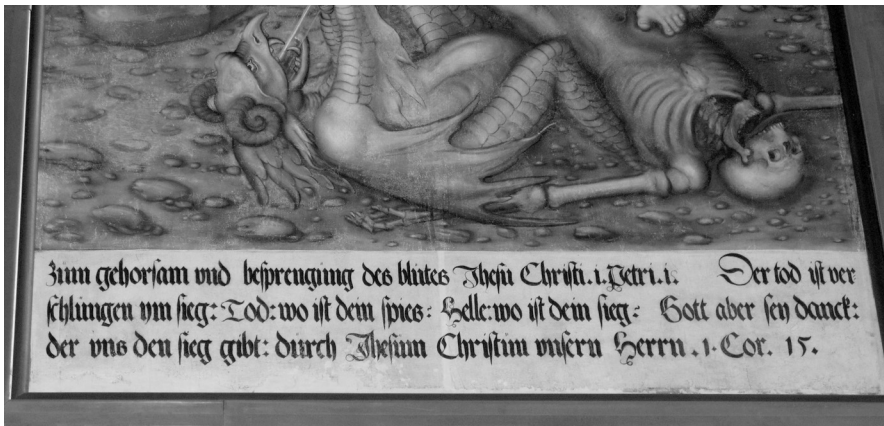 Zum gehorsam vnd besprengung des blutes Jhesu Christi. i. Petri. i. Der tod ist ver
schlungen ym sieg: Tod: wo ist dein spies: Helle: wo ist dein sieg: Gott aber sey danck:
der vns den sieg gibt: durch Jhesum Christum vnsern Herrn. 1. Cor. 15.